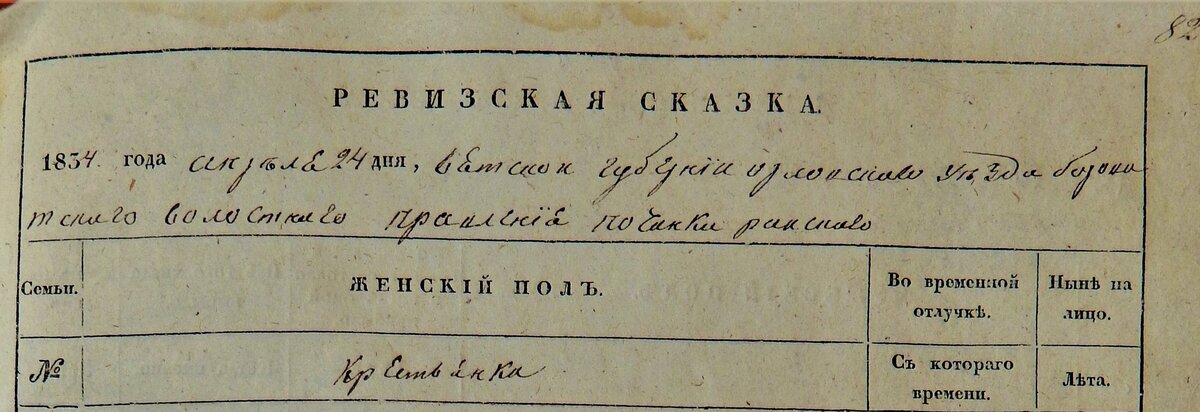 82
РЕВИЗСКАЯ СКАЗКА.
1834 года апрѣля 24 дня, вятской губерніи орловского уѣзда
тского волостнаго правленія починка
Семьи. ЖЕНСКІЙ ПОЛЪ. Во временной отлучкѣ. Нынѣ на лицо.
№ крестьянка Съ котораго времени. Лѣта.